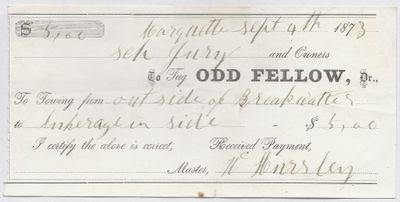 $ 5,00 Marquette Sept 4th 1873
Sch Jury and Owners
To Tug ODD FELLOW, Dr.,
To Towing from out side of Breakwatter
to Ankerage in side - $ 5,00
I certify the above is correct, Received Payment,
Master, W Hursley